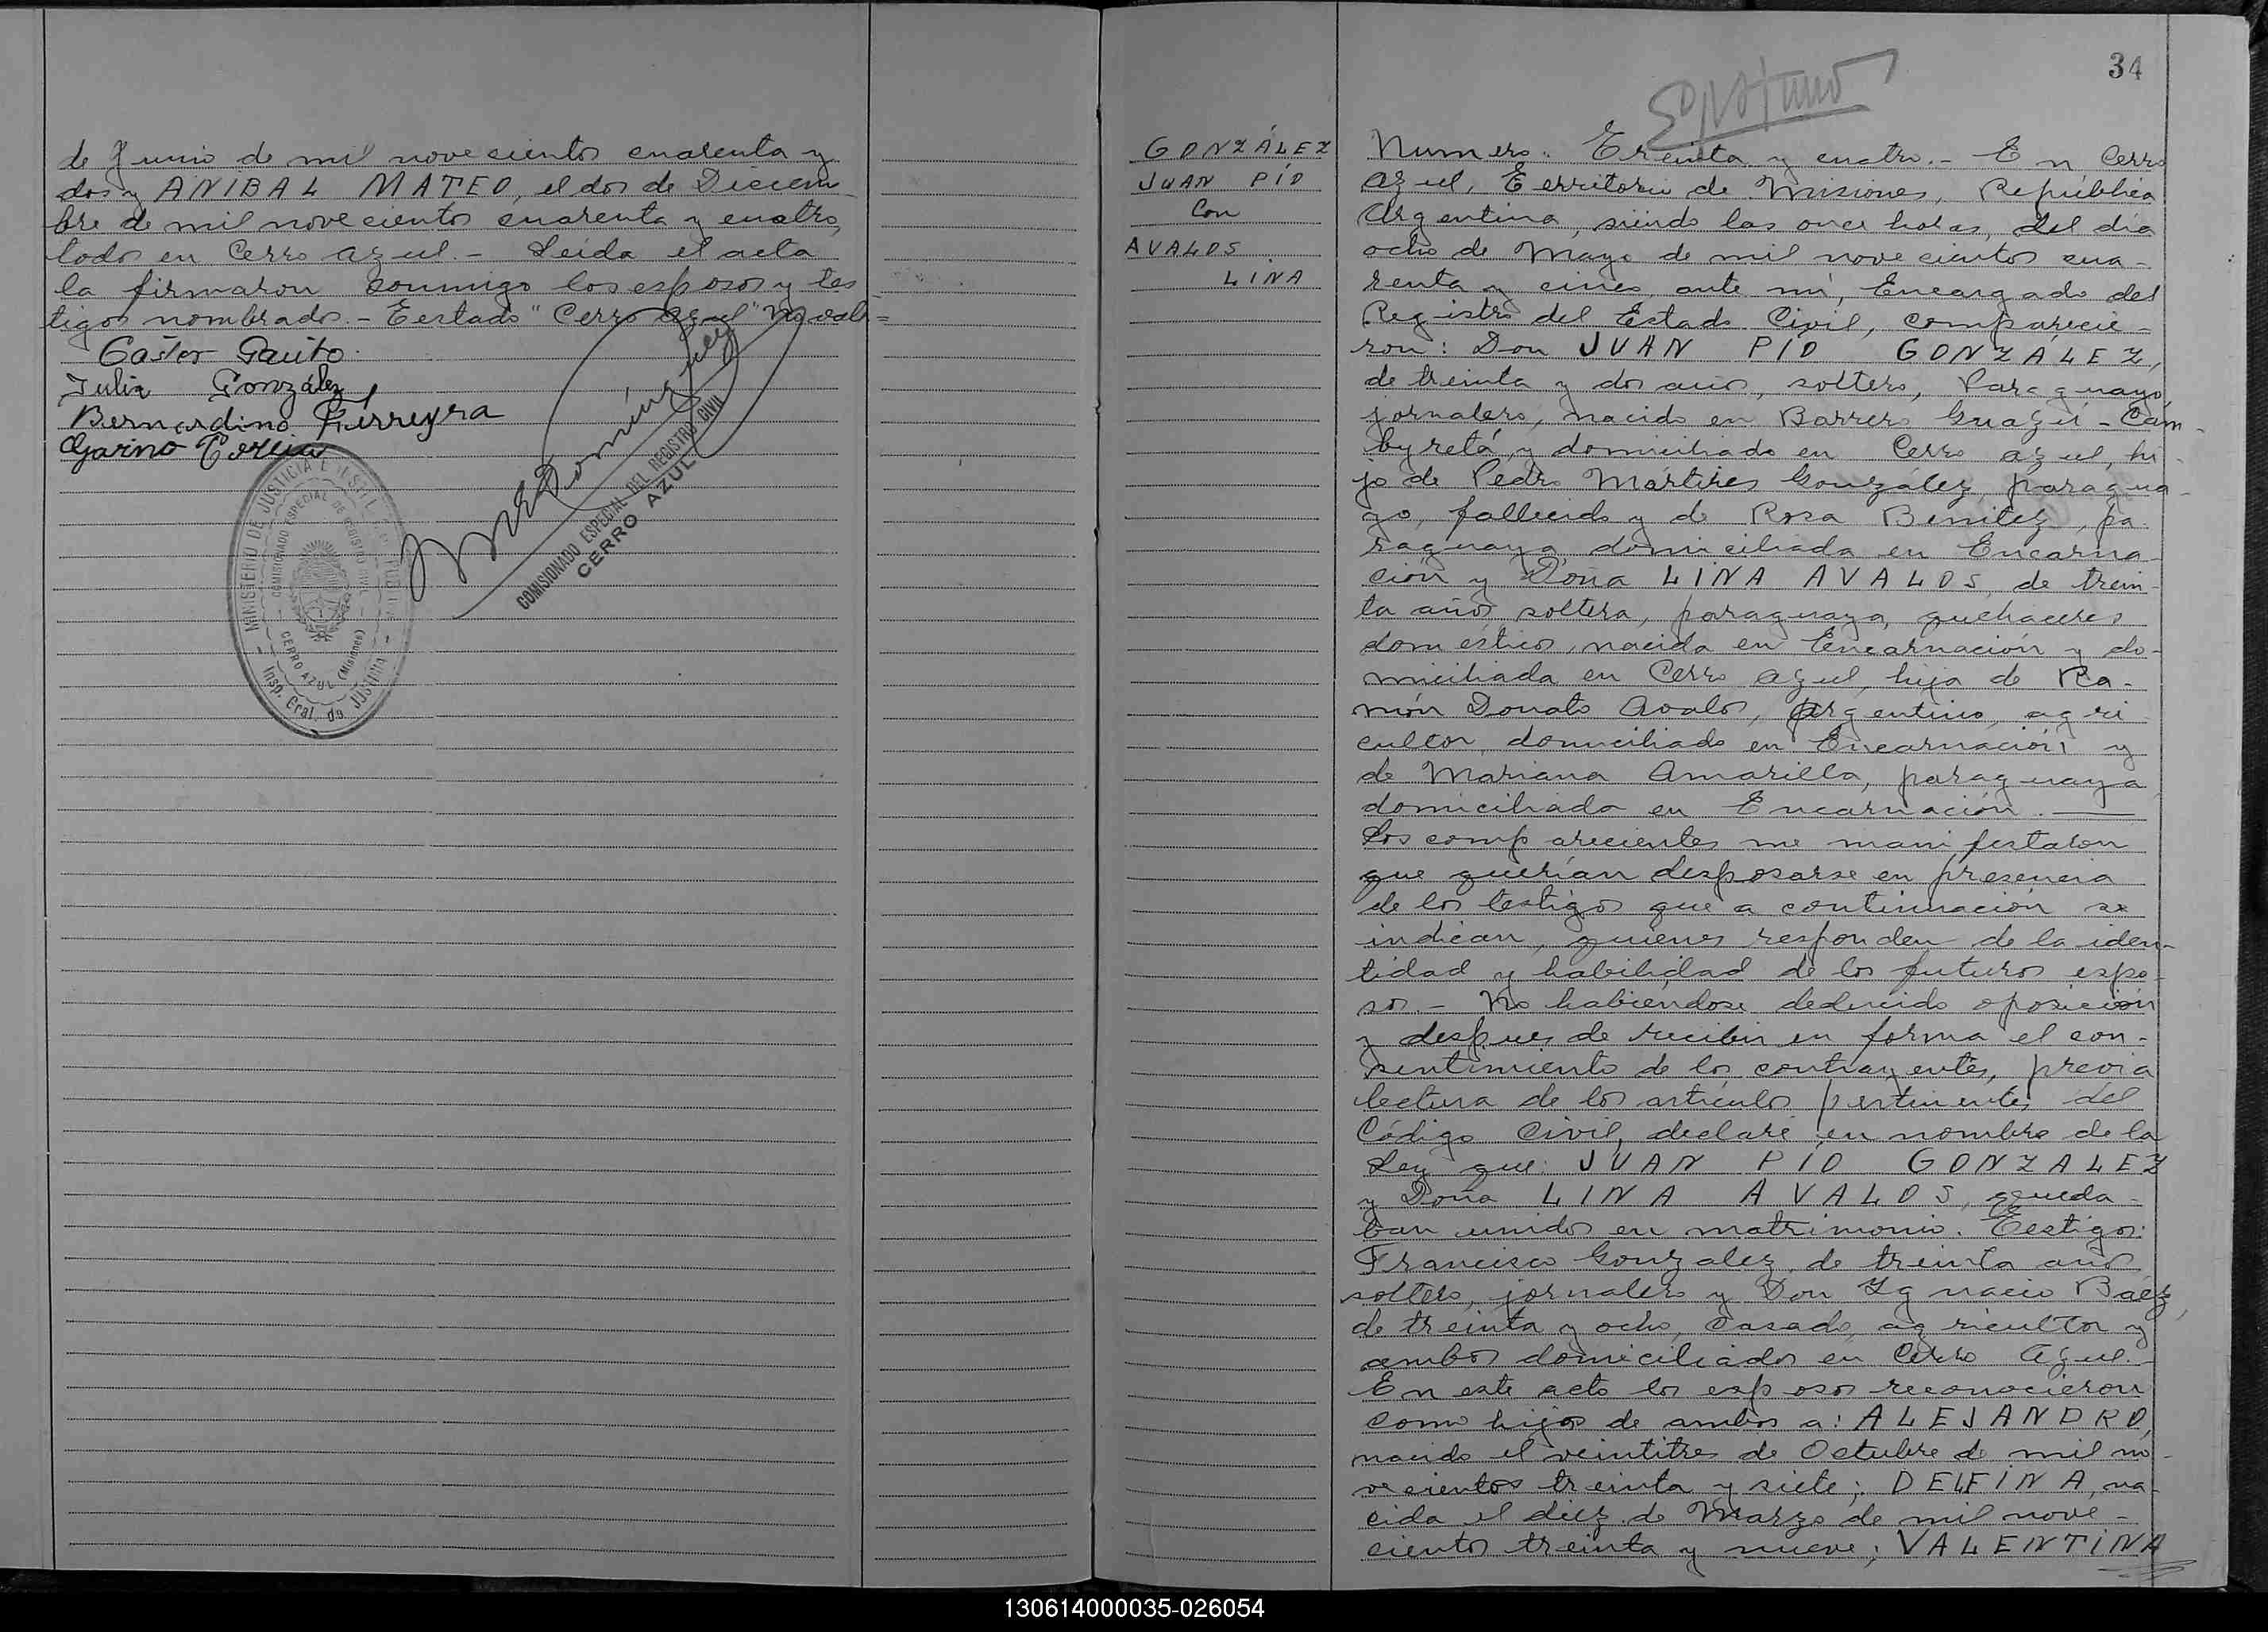 de Junio de mil novecientos cuarenta y
dos y ANIBAL MATEO, el dos de Diciem
bre de mil novecientos cuarenta y cuatro,
todos en Cerro Azul.- Leída el acta
la firmaron conmigo los esposos y tes
tigos nombrados.- Testado "Cerro Azul" No vale=
Gauto
Julia González
Bernardino Ferreyra
Domínguez
COMISIONADO ESPECIAL DEL REGISTRO CIVIL
CERRO AZUL
MINISTERIO DE JUSTICIA E INSTR. PUBLICA
COMISIONADO ESPECIAL DE REGISTRO CIVIL
CERRO AZUL (Misiones)
Insp. Gral. de Justicia
34
GONZÁLEZ
JUAN PÍO
Con
AVALOS
LINA
Numero: Treinta y cuatro.- En Cerro
Azul, Territorio de Misiones, República
Argentina, siendo las once horas, del día
ocho de Mayo de mil novecientos cua-
renta y cinco, ante mí, Encargado del
Registro del Estado Civil, comparecie-
ron: Don JUAN PÍO GONZÁLEZ,
de treinta y dos años, soltero, Paraguayo,
jornalero, nacido en Barrero Guazú - Cam-
byretá, y domiciliado en Cerro Azul, hi-
jo de Pedro Mártires González, paragua-
yo, fallecido y de Rosa Benitez, pa
raguaya domiciliada en Encarna
ción y Doña LINA AVALOS, de trein-
ta años, soltera, paraguaya, quehaceres
domésticos, nacida en Encarnación y do-
miciliada en Cerro Azul, hija de Ra-
món Donato Avalos, Argentino, agri
cultor, domiciliado en Encarnación y
de Mariana Amarilla, paraguaya
domiciliada en Encarnación.
Los comparecientes me manifestaron
que querían desposarse en presencia
de los testigos que a continuación se
indican, quienes responden de la iden-
tidad y habilidad de los futuros espo-
sos.- No habiéndose deducido oposición
y despues de recibir en forma el con-
sentimiento de los contrayentes, previa
lectura de los artículos pertinentes del
Código Civil, declaré en nombre de la
Ley que: JUAN PÍO GONZALEZ
y Doña LINA AVALOS, queda-
ban unidos en matrimonio. Testigos:
Francisco Gonzalez, de treinta años
soltero, jornalero y Don Ignacio Baéz,
de treinta y ocho, casado, agricultor y
ambos domiciliados en Cerro Azul.-
En este acto los esposos reconocieron
como hijos de ambos a: ALEJANDRO,
nacido el veintitres de Octubre de mil no-
vecientos treinta y siete; DELFINA, na-
cida el diez de Marzo de mil nove-
cientos treinta y nueve; VALENTINA
130614000035-026054